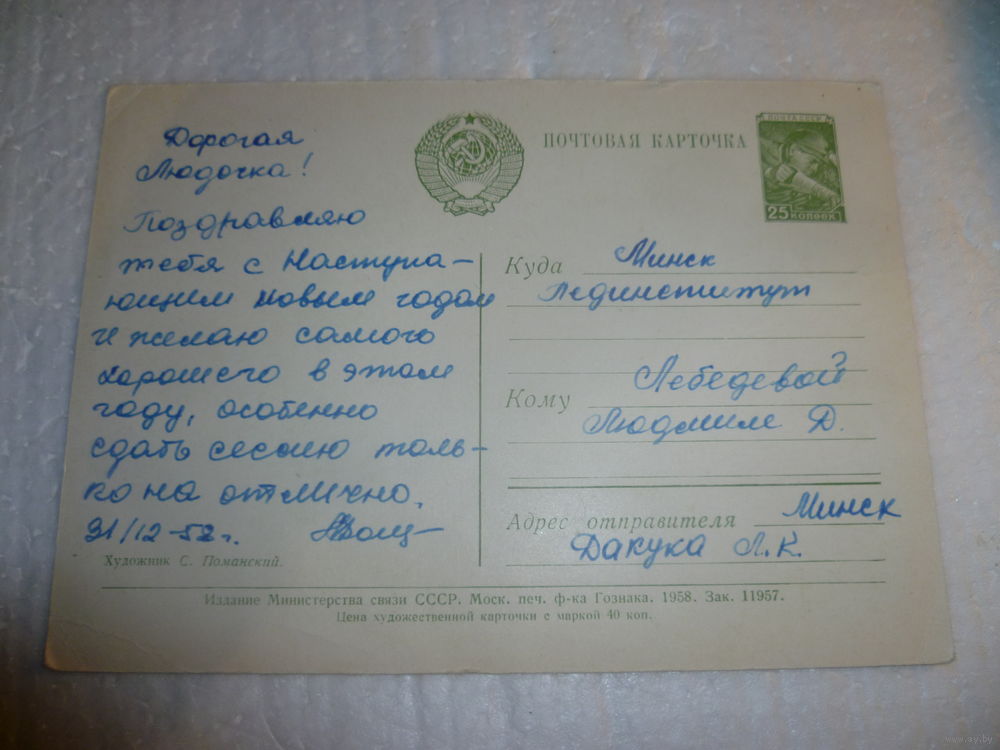 Дорогая
Людочка!
Поздравляю
тебя с Наступа-
ющим новым годом
и желаю самого
хорошего в этом
году, особенно
сдать сессию толь-
ко на отлично.
31/12-58г.
Художник С. Поманский.
ПОЧТОВАЯ КАРТОЧКА
ПОЧТА СССР
25 КОПЕЕК
Куда Минск
Пединститут
Кому Лебедевой
Людмиле Д.
Адрес отправителя Минск
Дакука Л.К.
Издание Министерства связи СССР. Моск. печ. ф-ка Гознака. 1958. Зак. 11957.
Цена художественной карточки с маркой 40 коп.
www.ay.by